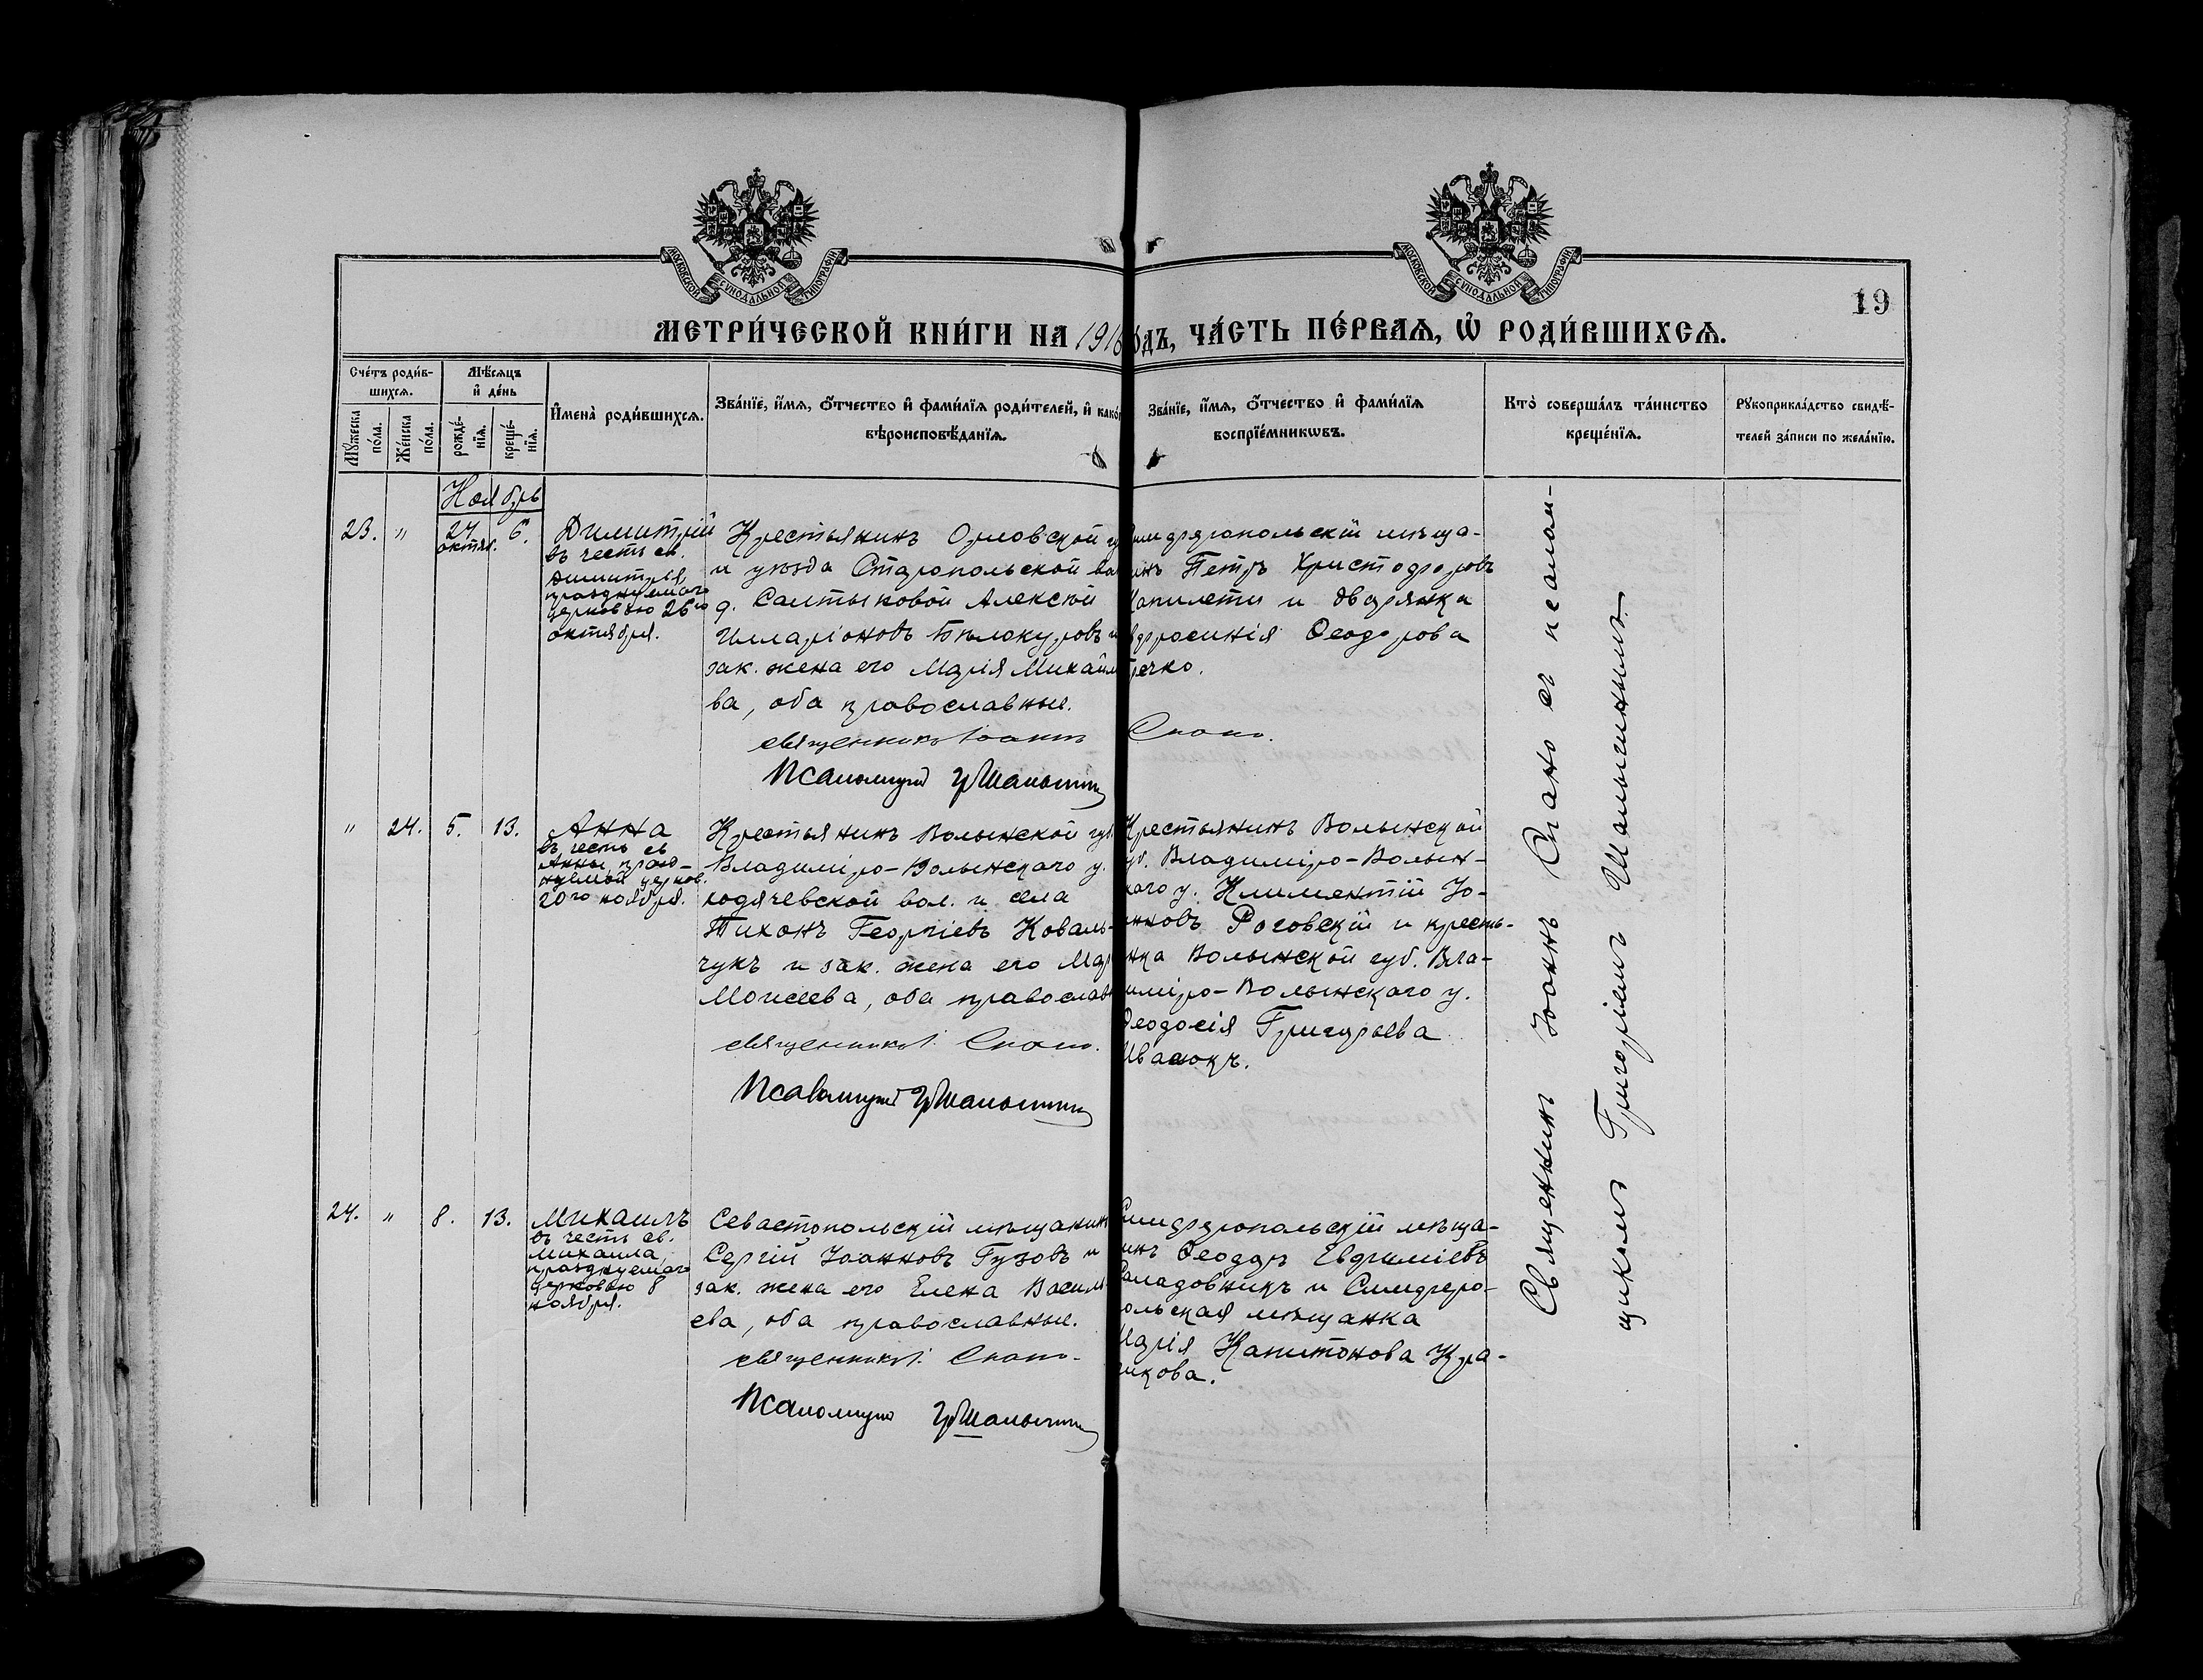 МОСКОВСКОЙ СУНОДАЛЬНОЙ ТИПОГРАФІИ
МОСКОВСКОЙ СУНОДАЛЬНОЙ ТИПОГРАФІИ
19
МЕТРИ́ЧЕСКОЙ КНИ́ГИ НА 1916
ДЪ, ЧА́СТЬ ПЕ́РВАѦ, Ѡ҆ РОДИ́ВШИХСѦ.
Сче́тъ роди́в-
шихсѧ.
Мѣ́сѧцъ
и҆ де́нь
Мꙋ́жеска
по́ла.
Же́нска
по́ла.
рожде́-
нїѧ.
креще́-
нїѧ.
И҆мена̀ роди́вшихсѧ.
Зва́нїе, и҆́мѧ, ѻ҆́тчество и҆ фами́лїѧ роди́телей, и҆ како́
вѣроисповѣ́данїѧ.
Зва́нїе, и҆́мѧ, ѻ҆́тчество и҆ фами́лїѧ
воспрїе́мникѡвъ.
Кто̀ соверша́лъ та́инство
креще́нїѧ.
Рꙋкоприкла́дство свидѣ́-
телей за́писи по жела́нїю.
Ноябрь
23. " 27 октяб. 6.
Димитрій
въ честь св.
Димитрія,
празднуемаго
церковью 26го
октября.
Крестьянинъ Орловской гу
и уѣзда Старопольской вол
д. Салтыковой Алексѣй
Илларіоновъ Бѣлокуровъ и
зак. жена его Марія Михайл
ва, оба православные.
священникъ Іоаннъ
Псаломщикъ Гр Шалыгинъ
имферопольскій мѣща-
инъ Петръ Христофоровъ
апилети и дворянка
вфросинія Ѳеодорова
речко.
Спано.
" 24. 5. 13.
Анна
въ честь св
Анны, празд-
нуемой церков.
20го ноября.
Крестьянинъ Волынской губ.
Владиміро-Волынскаго у.
ходячевской вол. и села
Тихонъ Георгіевъ Коваль-
чукъ и зак. жена его Мар
Моисеева, оба православ
священникъ І. Спано.
Псаломщикъ Гр Шалыгинъ
Крестьянинъ Волынской
уб. Владиміро-Волын-
каго у. Климентій Іо-
нновъ Роговскій и кресть-
нка Волынской губ. Вла-
иміро-Волынскаго у.
Ѳеодосія Григорьева
Ивасюкъ.
24. " 8. 13.
Михаилъ
въ честь св.
Михаила,
празднуемаго
церковью 8
ноября.
Севастопольскій мѣщанин
Сергій Іоанновъ Гузовъ и
зак. жена его Елена Васил
ева, оба православные.
священникъ І. Спано.
Псаломщикъ Гр Шалыгинъ
Симферопольскій мѣща-
инъ Ѳеодоръ Евфиміевъ
аладовникъ и Симферо-
ольская мѣщанка
Марія Капитонова Кра-
икова.
Священникъ Іоаннъ Спано съ псалом-
щикомъ Григоріемъ Шалыгинымъ.